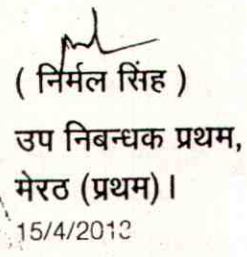 ( निर्मल सिंह )
उप निबन्धक प्रथम,
मेरठ (प्रथम) ।
15/4/2013